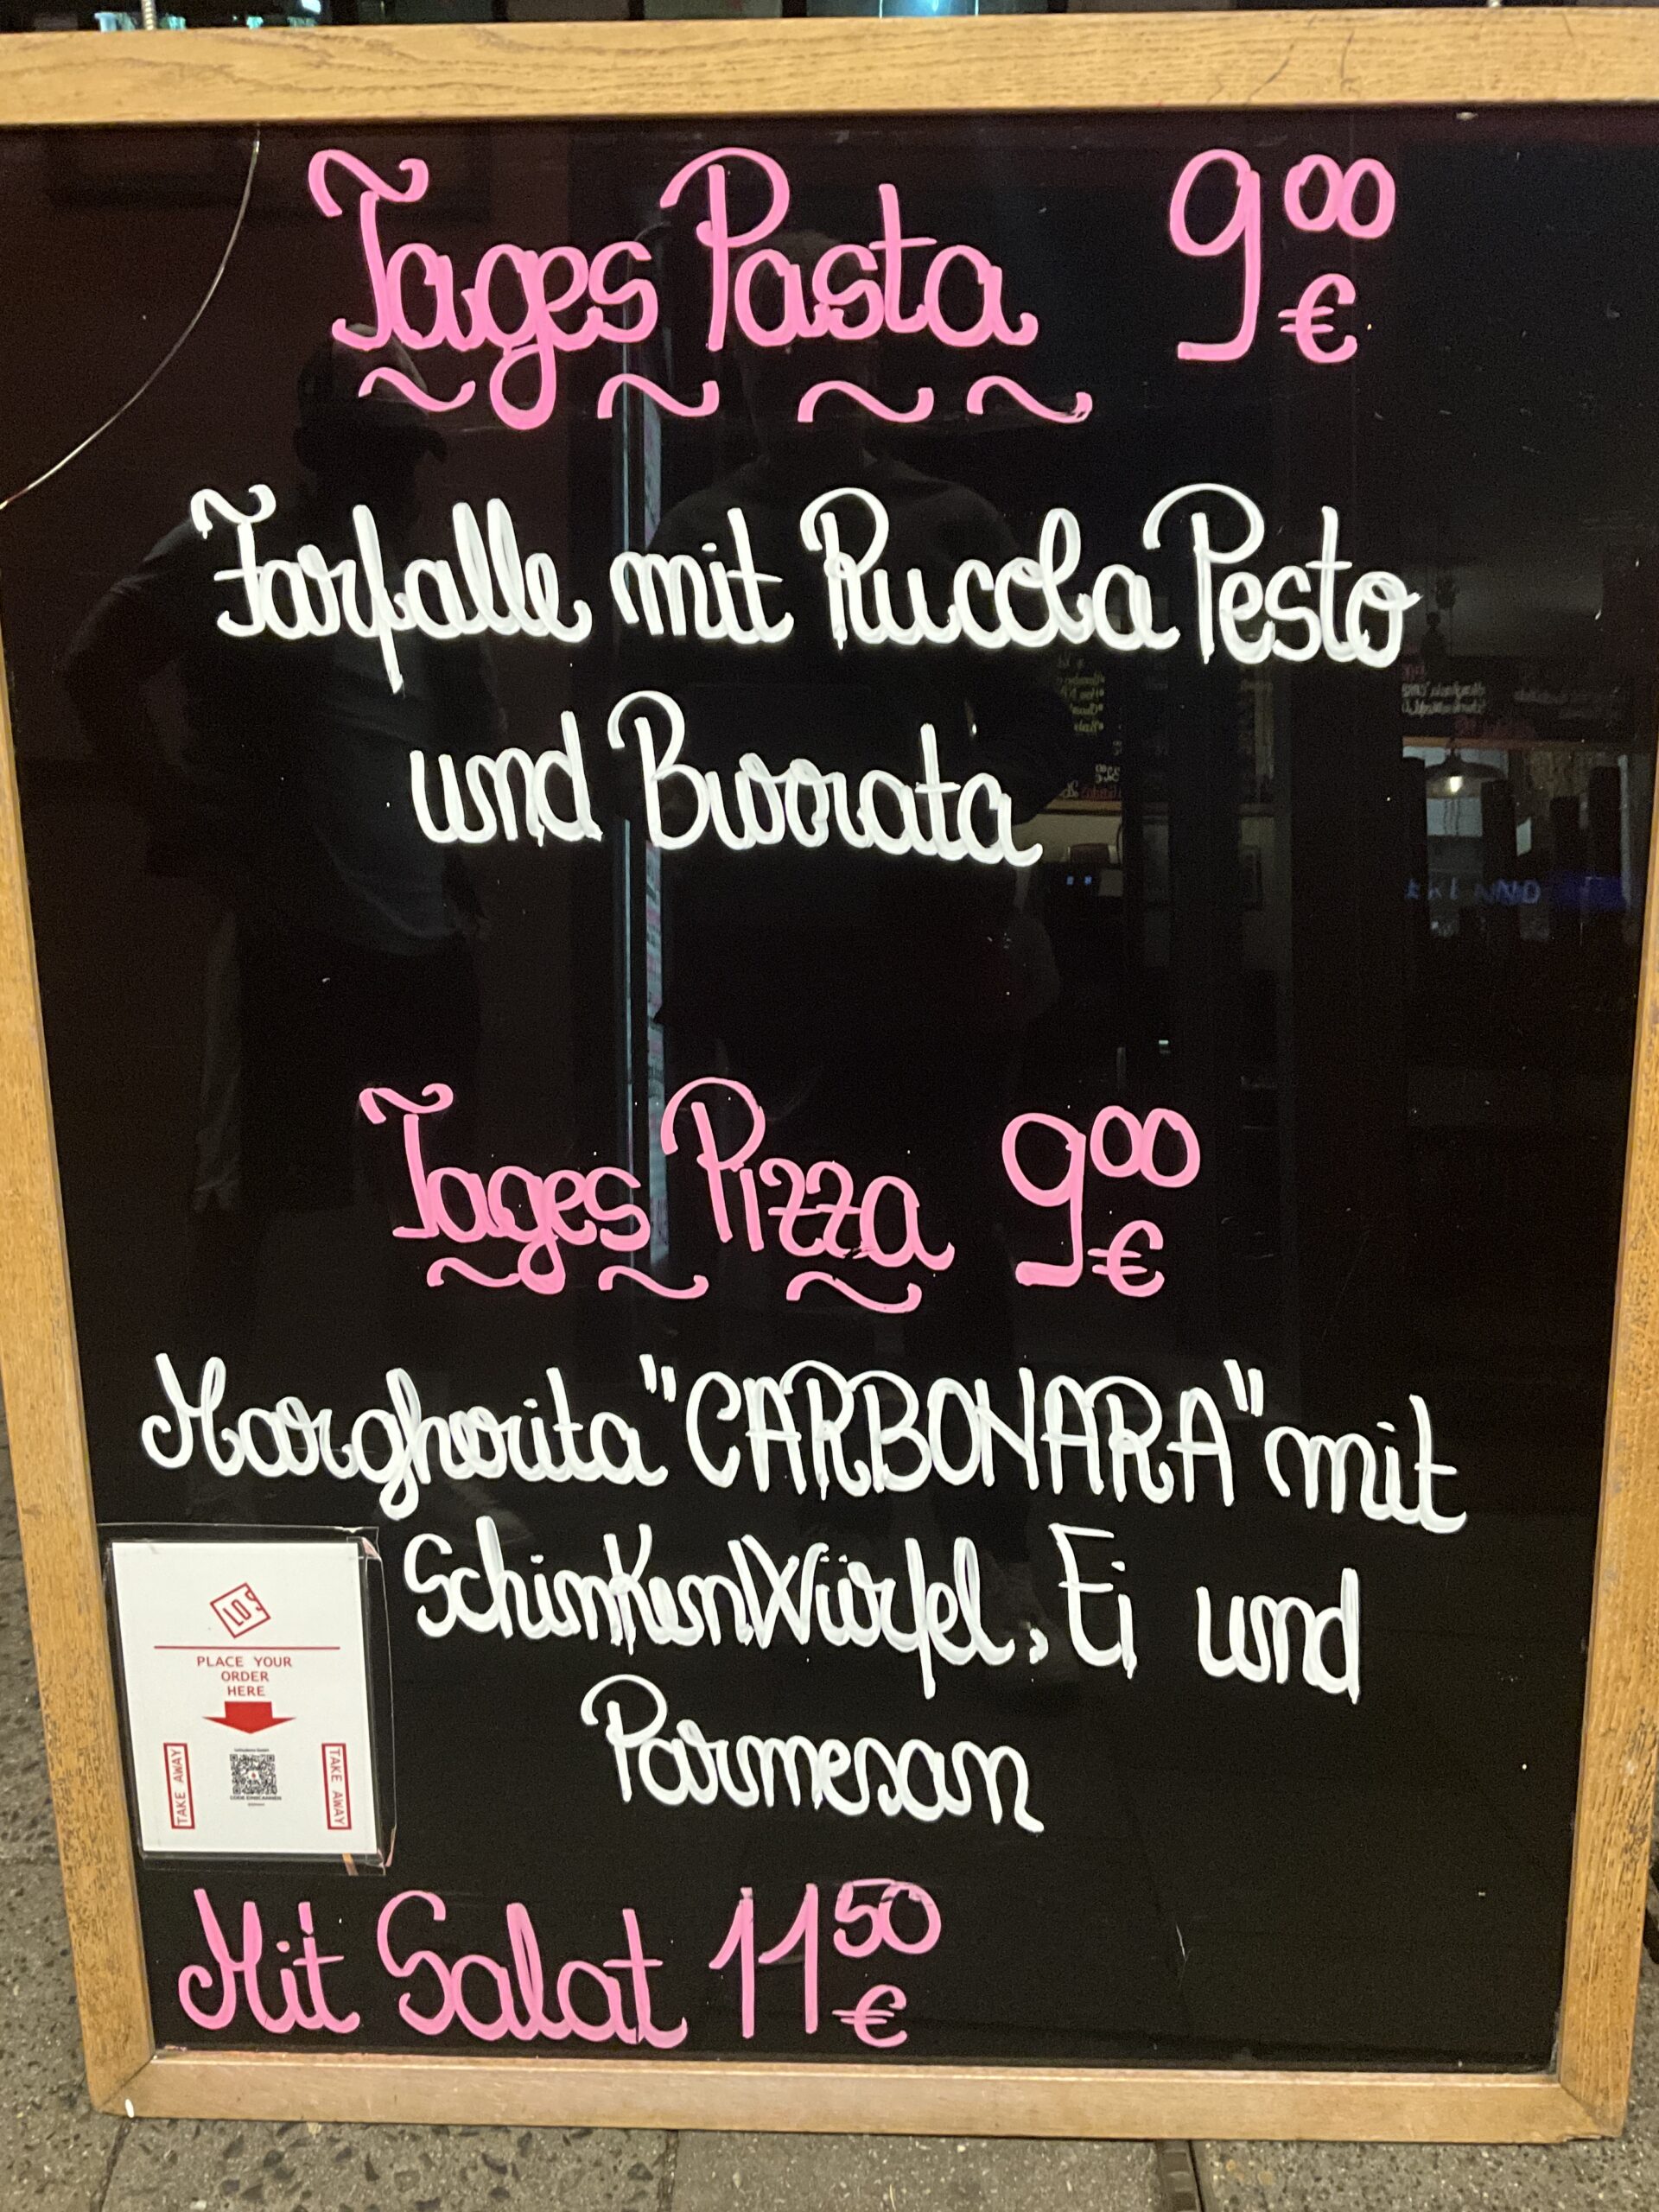 Tages Pasta 900 €
Farfalle mit Rucola Pesto
und Burrata
Tages Pizza 900 €
Margherita "CARBONARA" mit
SchinkenWürfel, Ei und
Parmesan
Mit Salat 11 50 €
LO'S
PLACE YOUR
ORDER
HERE
TAKE AWAY
TAKE AWAY
CODE EINSCANNEN